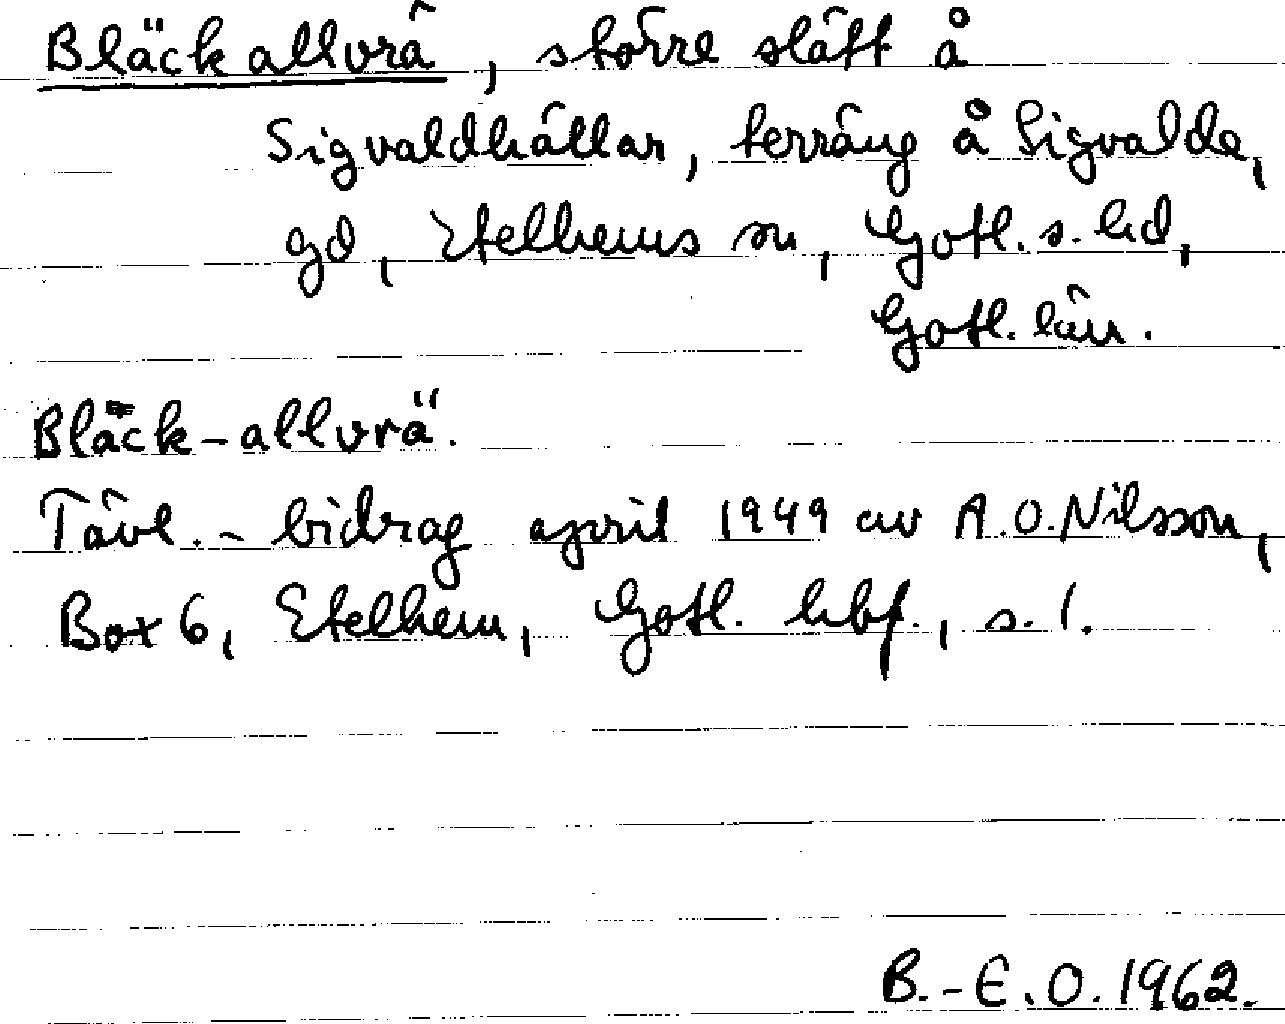 Bläckallvrä, större slätt å
Sigvaldhällar, terräng å Sigvalde,
gd, Etelhems sn, Gotl. s. hd,
Gotl. län.
Bläck-allvrä.
Tävl.-bidrag april 1949 av A.O. Nilsson,
Box 6, Etelhem, Gotl. hbf., s. 1.
B.-E.O. 1962.